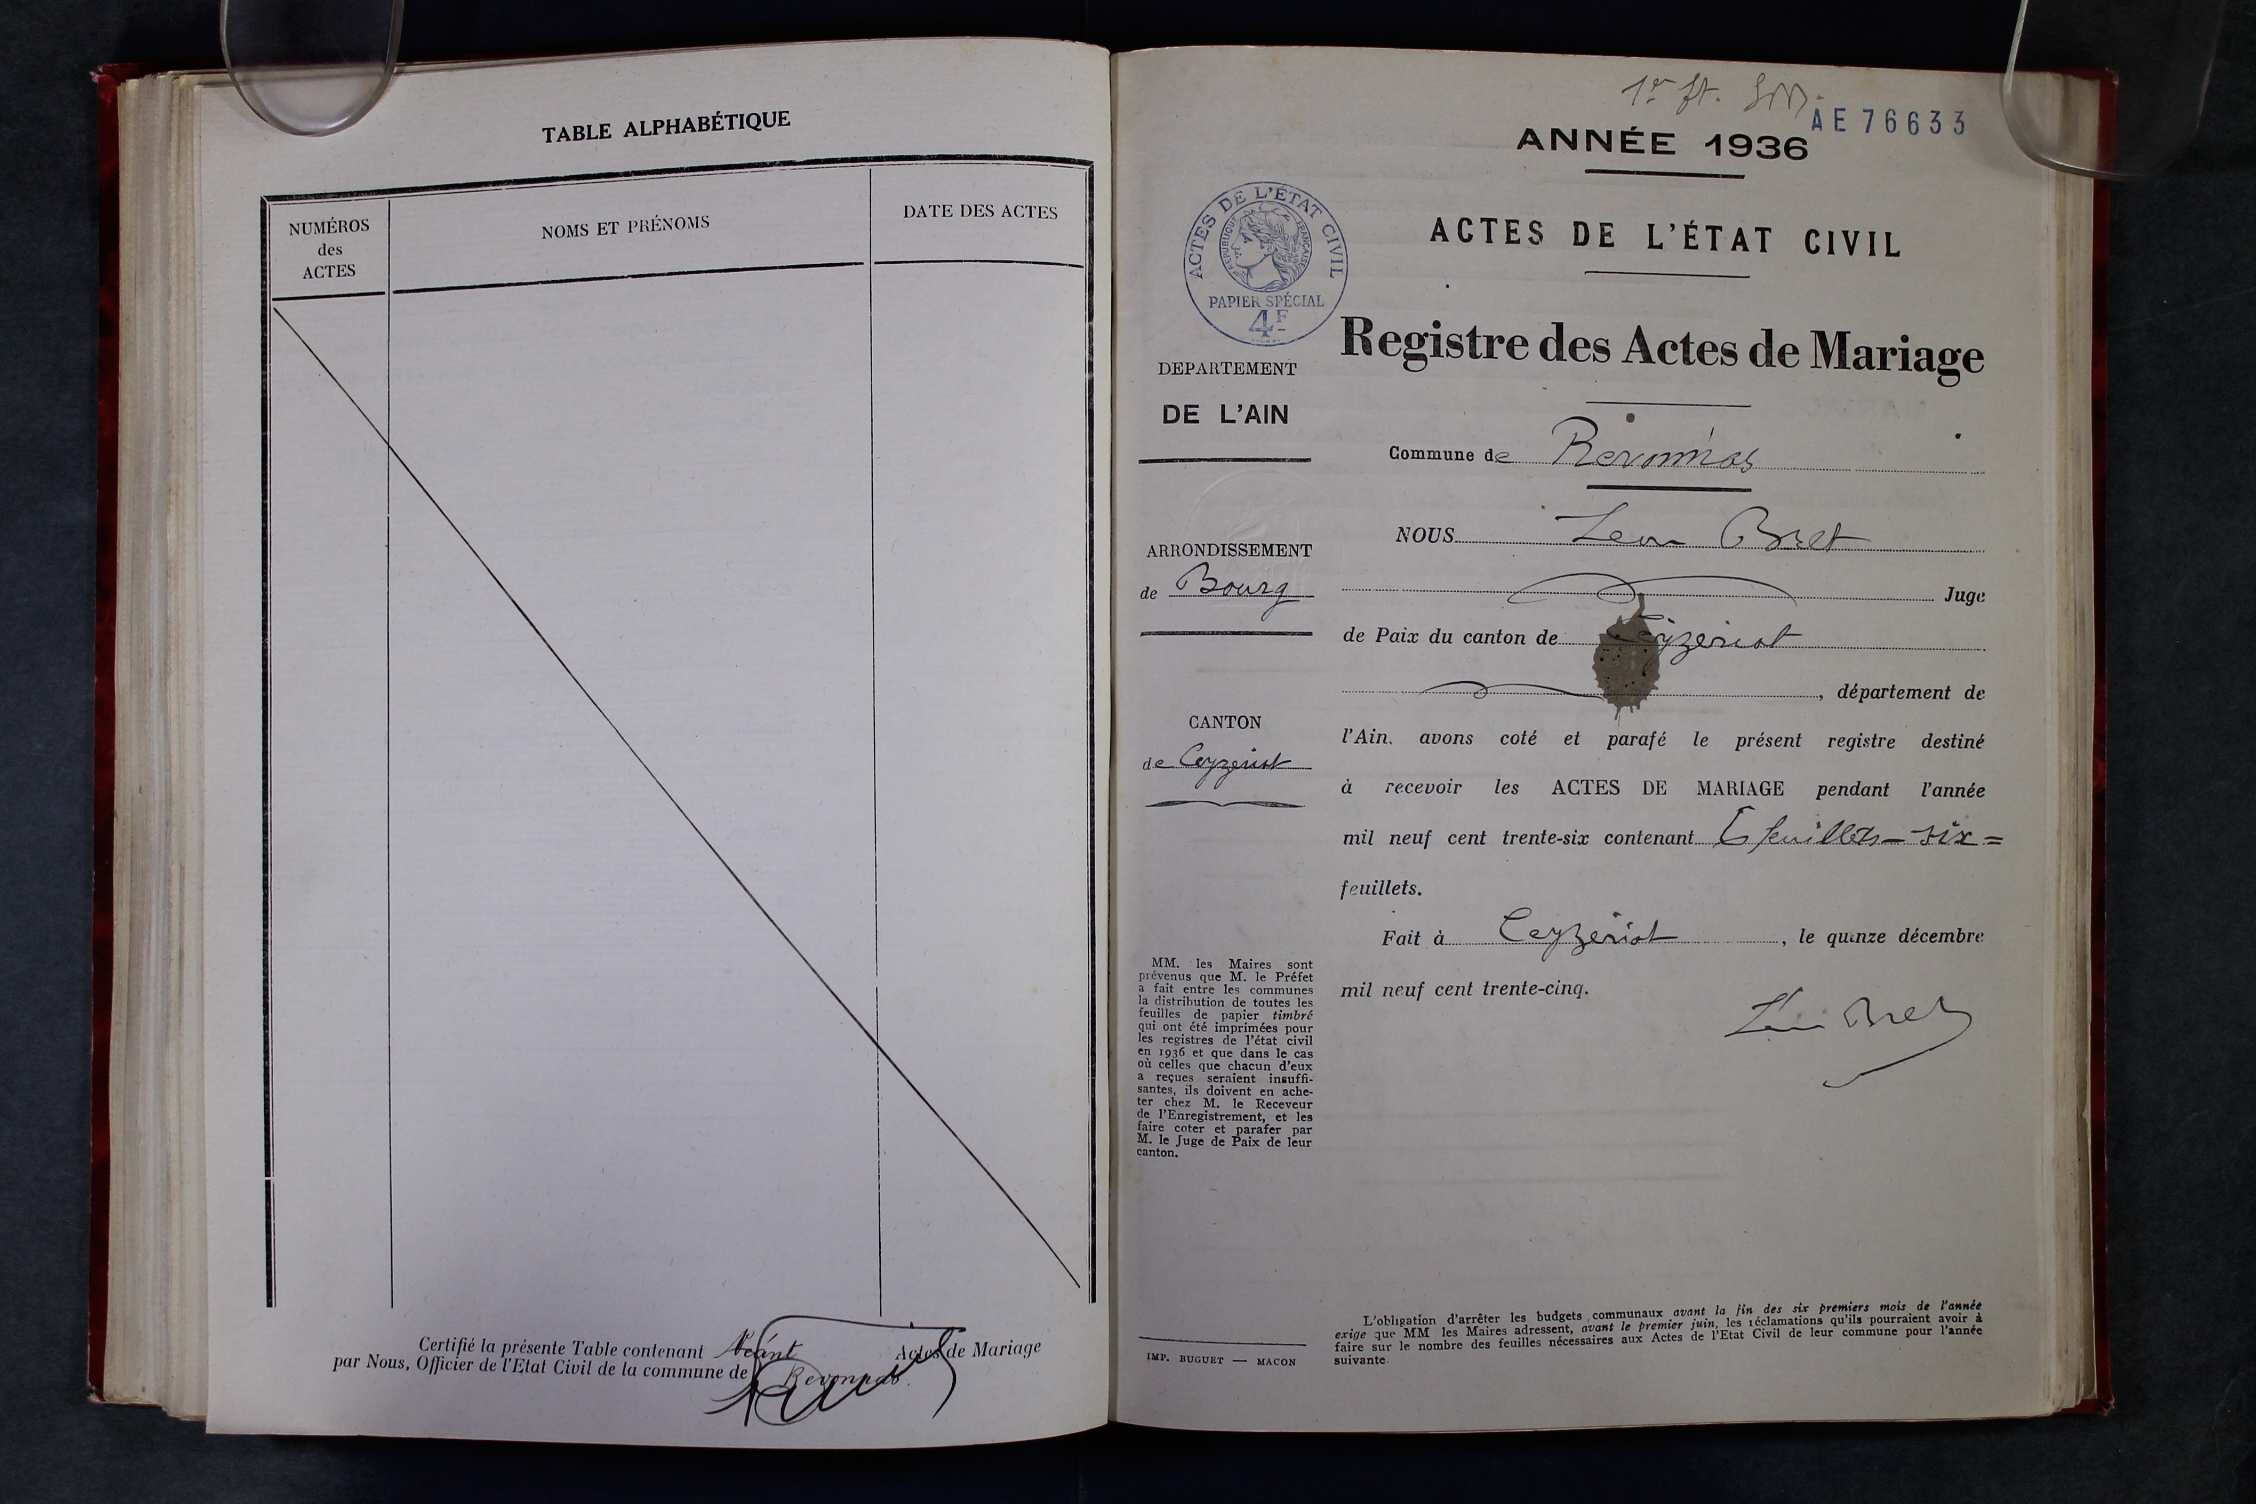 TABLE ALPHABÉTIQUE
NUMÉROS
des
ACTES
NOMS ET PRÉNOMS
DATE DES ACTES
Certifié la présente Table contenant Néant Actes de Mariage
par Nous, Officier de l'Etat Civil de la commune de Revonnas.
1er ft.
AE 76633
ANNÉE 1936
ACTES DE L'ÉTAT CIVIL
ACTES DE L'ÉTAT CIVIL
RÉPUBLIQUE FRANÇAISE
PAPIER SPÉCIAL
4F
Registre des Actes de Mariage
DEPARTEMENT
DE L'AIN
Commune de Revonnas
ARRONDISSEMENT
de Bourg
CANTON
de Ceyzeriat
NOUS Léon Bret
Juge
de Paix du canton de Ceyzériat
, département de
l'Ain, avons coté et parafé le présent registre destiné
à recevoir les ACTES DE MARIAGE pendant l'année
mil neuf cent trente-six contenant 6 feuillets - six =
feuillets.
Fait à Ceyzériat, le quinze décembre
mil neuf cent trente-cinq.
Léon Bret
MM. les Maires sont
prévenus que M. le Préfet
a fait entre les communes
la distribution de toutes les
feuilles de papier timbré
qui ont été imprimées pour
les registres de l'état civil
en 1936 et que dans le cas
où celles que chacun d'eux
a reçues seraient insuffi-
santes, ils doivent en ache-
ter chez M. le Receveur
de l'Enregistrement, et les
faire coter et parafer par
M. le Juge de Paix de leur
canton.
IMP. BUGUET — MACON
L'obligation d'arrêter les budgets communaux avant la fin des six premiers mois de l'année
exige que MM les Maires adressent, avant le premier juin, les réclamations qu'ils pourraient avoir à
faire sur le nombre des feuilles nécessaires aux Actes de l'Etat Civil de leur commune pour l'année
suivante.